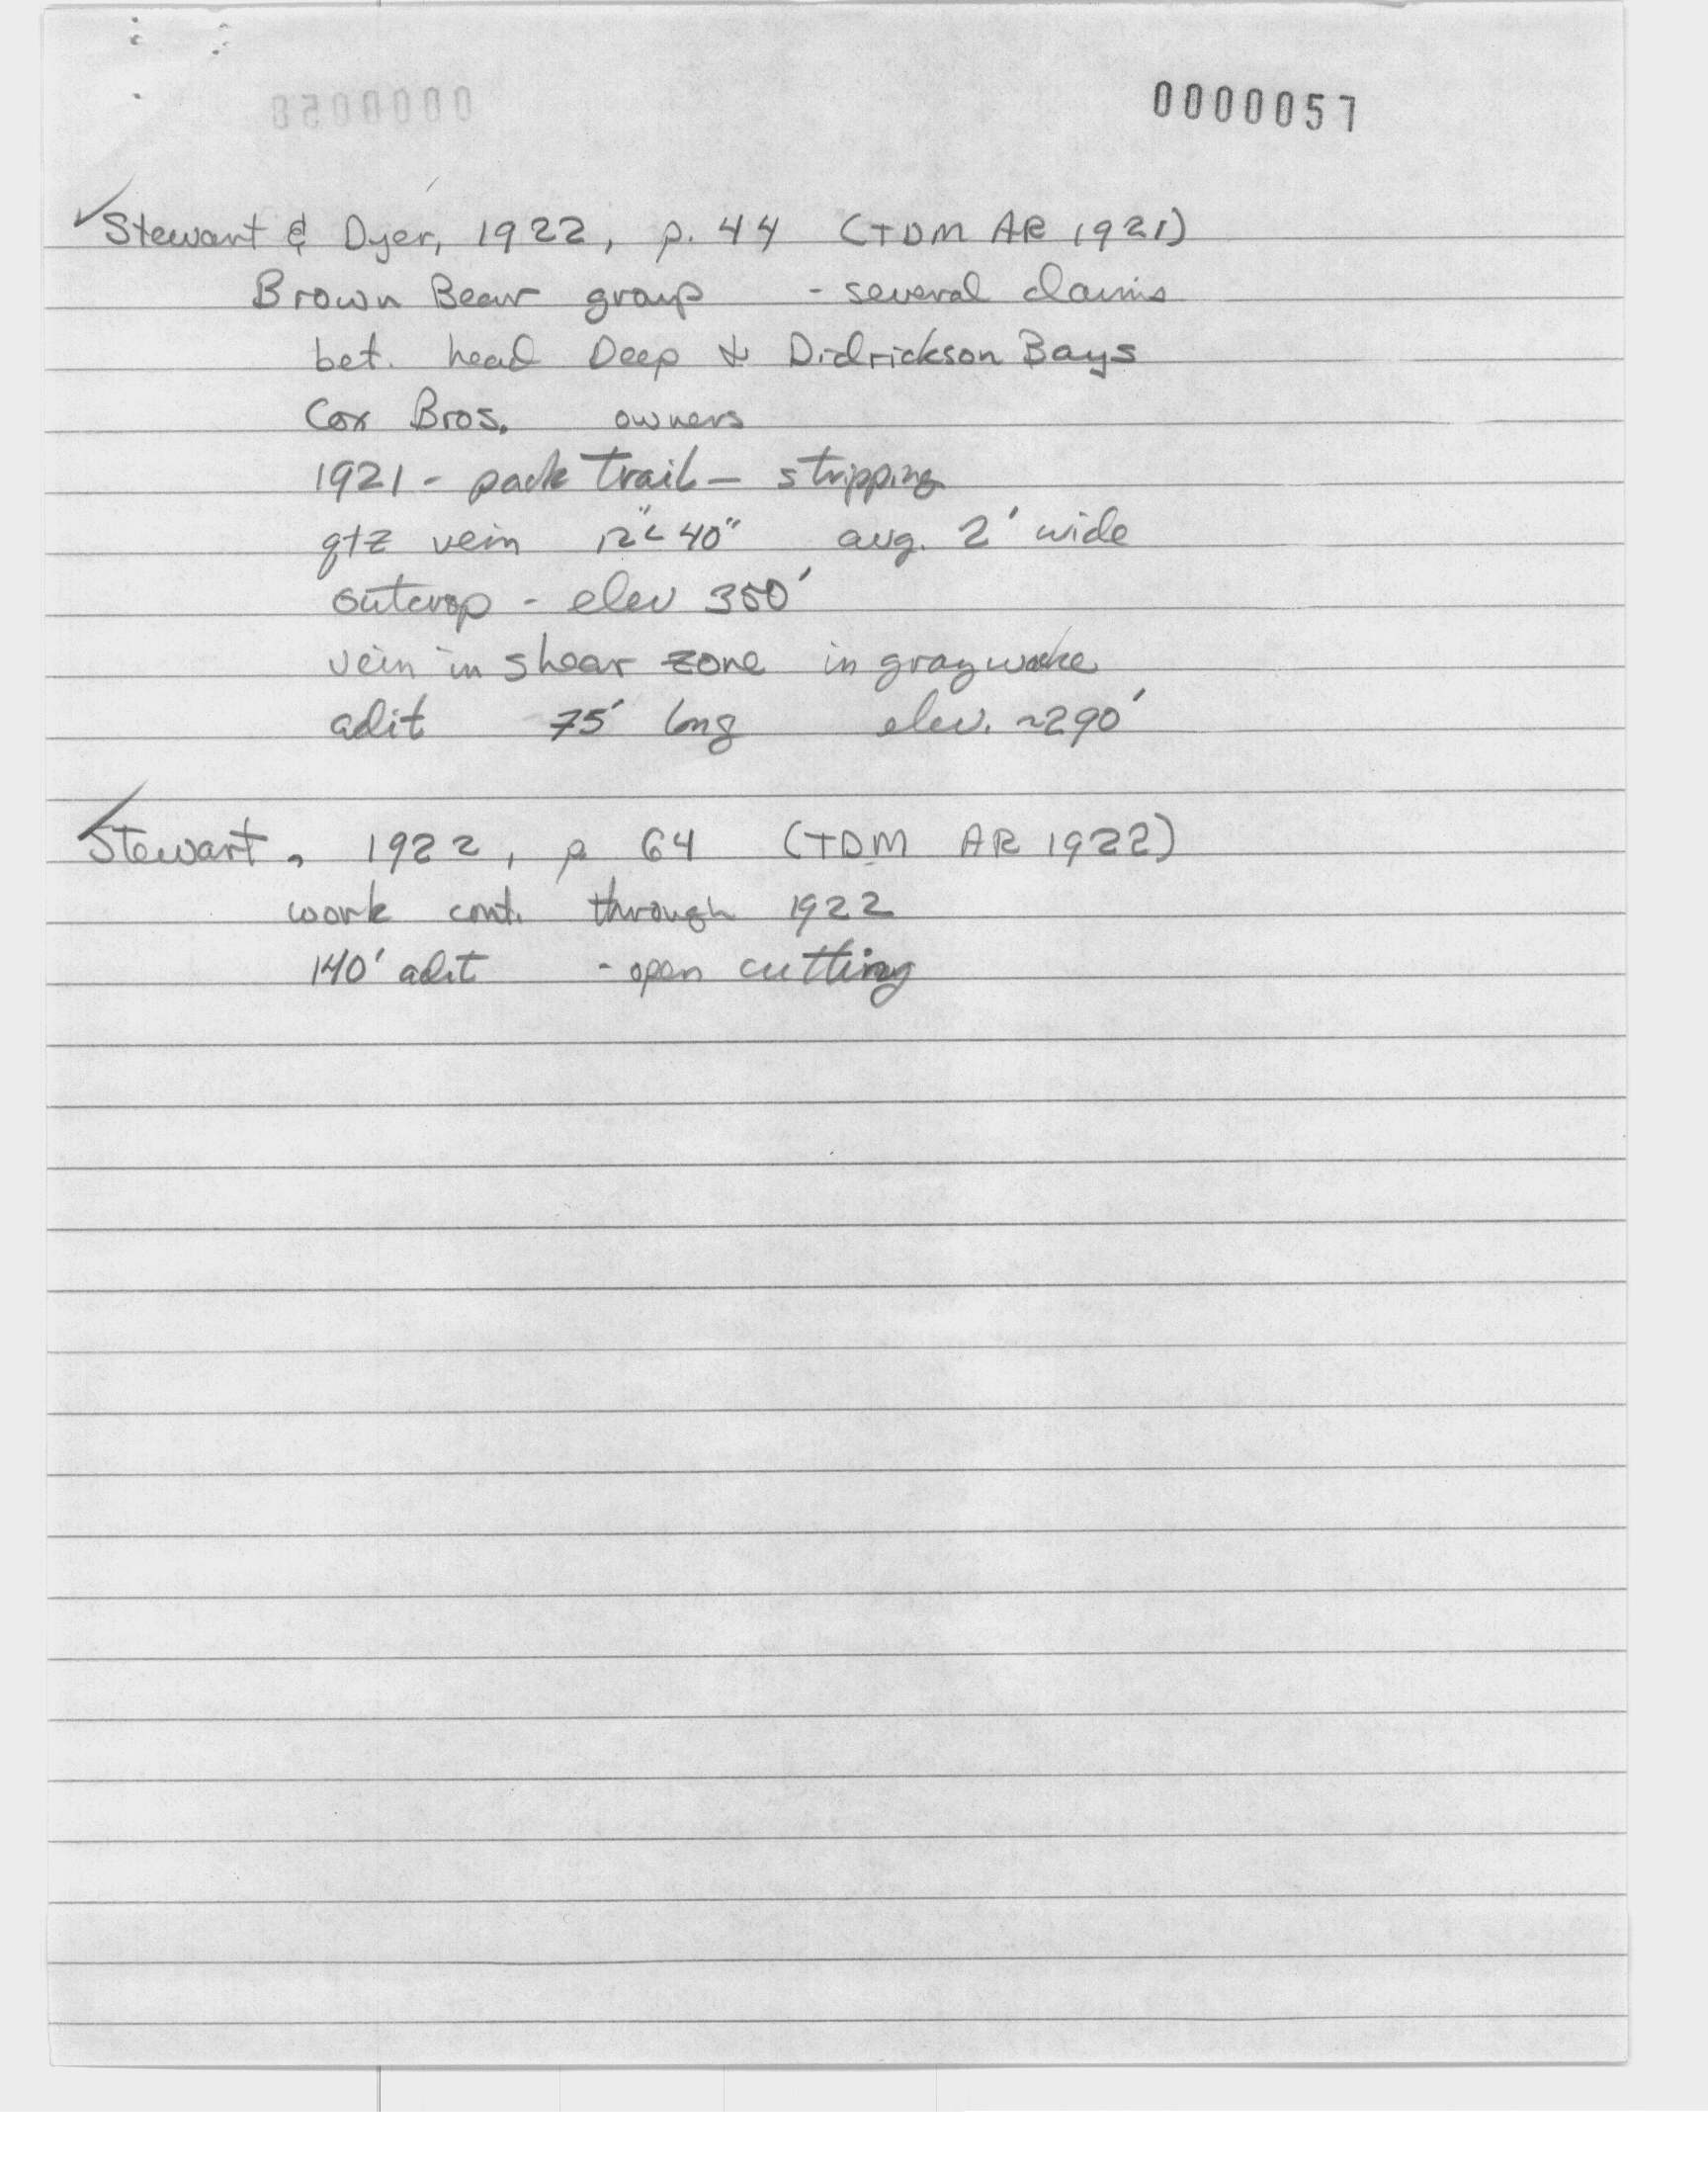 0000057
Stewart & Dyer, 1922, p. 44 (TDM AR 1921)
Brown Bear group - several claims
bet. head Deep & Didrickson Bays
Cox Bros. owners
1921 - pack trail - stripping
qtz vein 12" 40" avg. 2' wide
outcrop - elev 350'
vein in shear zone in graywacke
adit 75' long elev. ~290'
Stewart, 1922, p 64 (TDM AR 1922)
work cont. through 1922
140' adit - open cutting